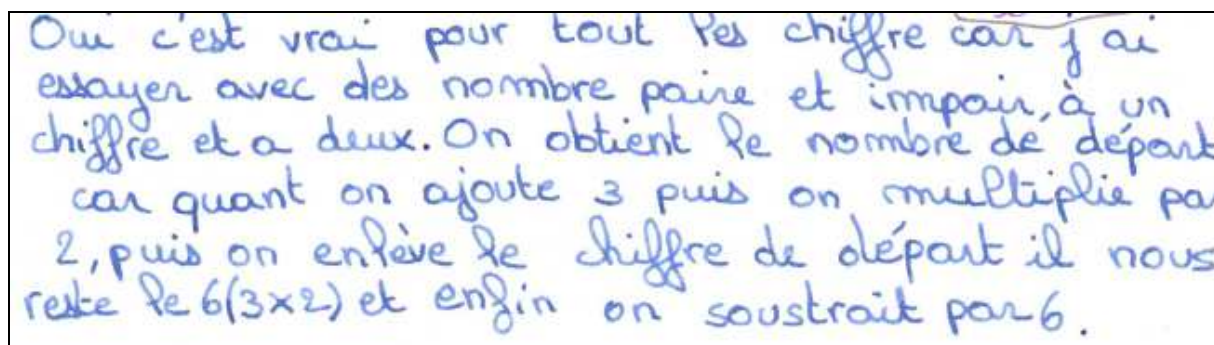 Oui c'est vrai pour tout les chiffre car j'ai
essayer avec des nombre paire et impair, à un
chiffre et a deux. On obtient le nombre de départ
car quant on ajoute 3 puis on multiplie pa
2, puis on enlève le chiffre de départ il nous
reste le 6(3x2) et enfin on soustrait par 6.